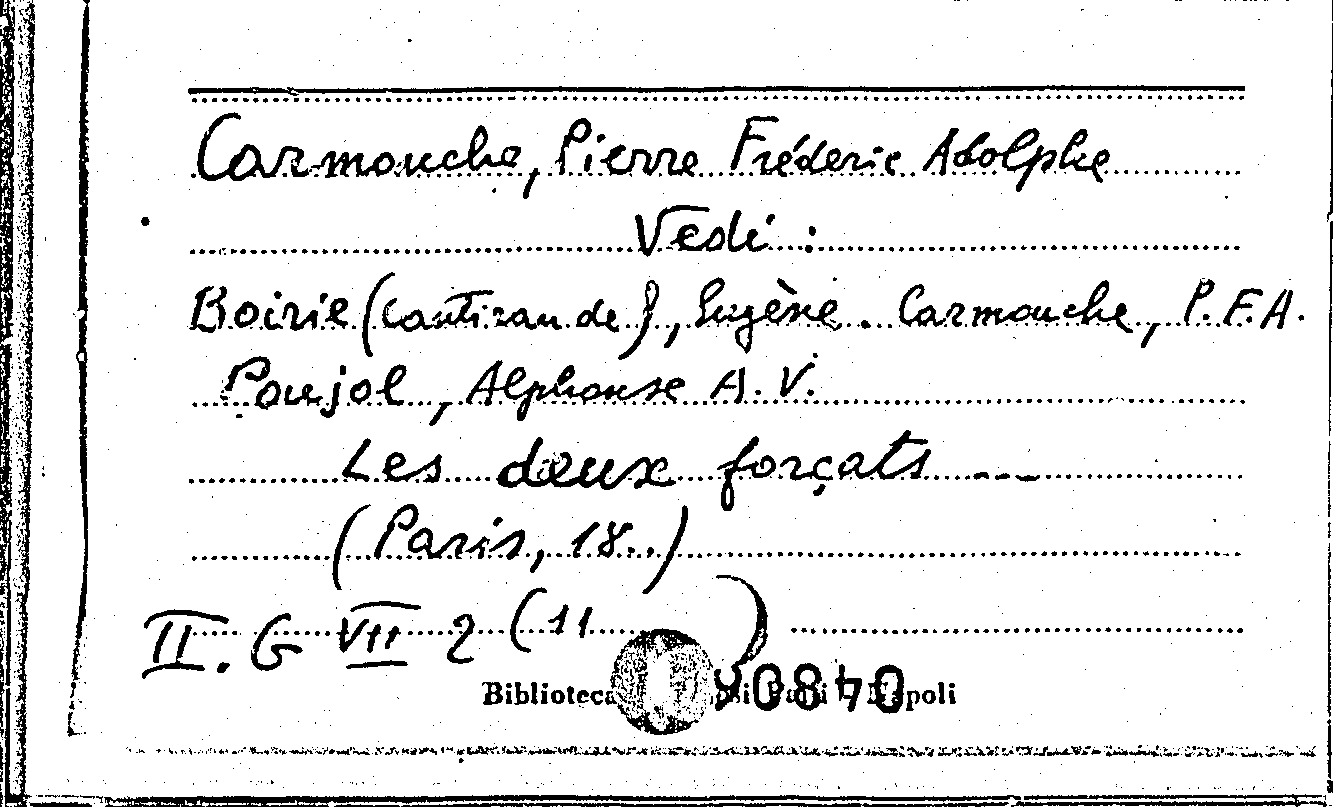 Carmouche, Pierre Fréderic Adolphe
Vedi :
Boirie (Cantiran de), Eugène. Carmouche, P.F.A.
Poujol, Alphonse A.V.
Les deux forçats ---
(Paris, 18..)
II. G VII 2 (11 )
Biblioteca Napoli